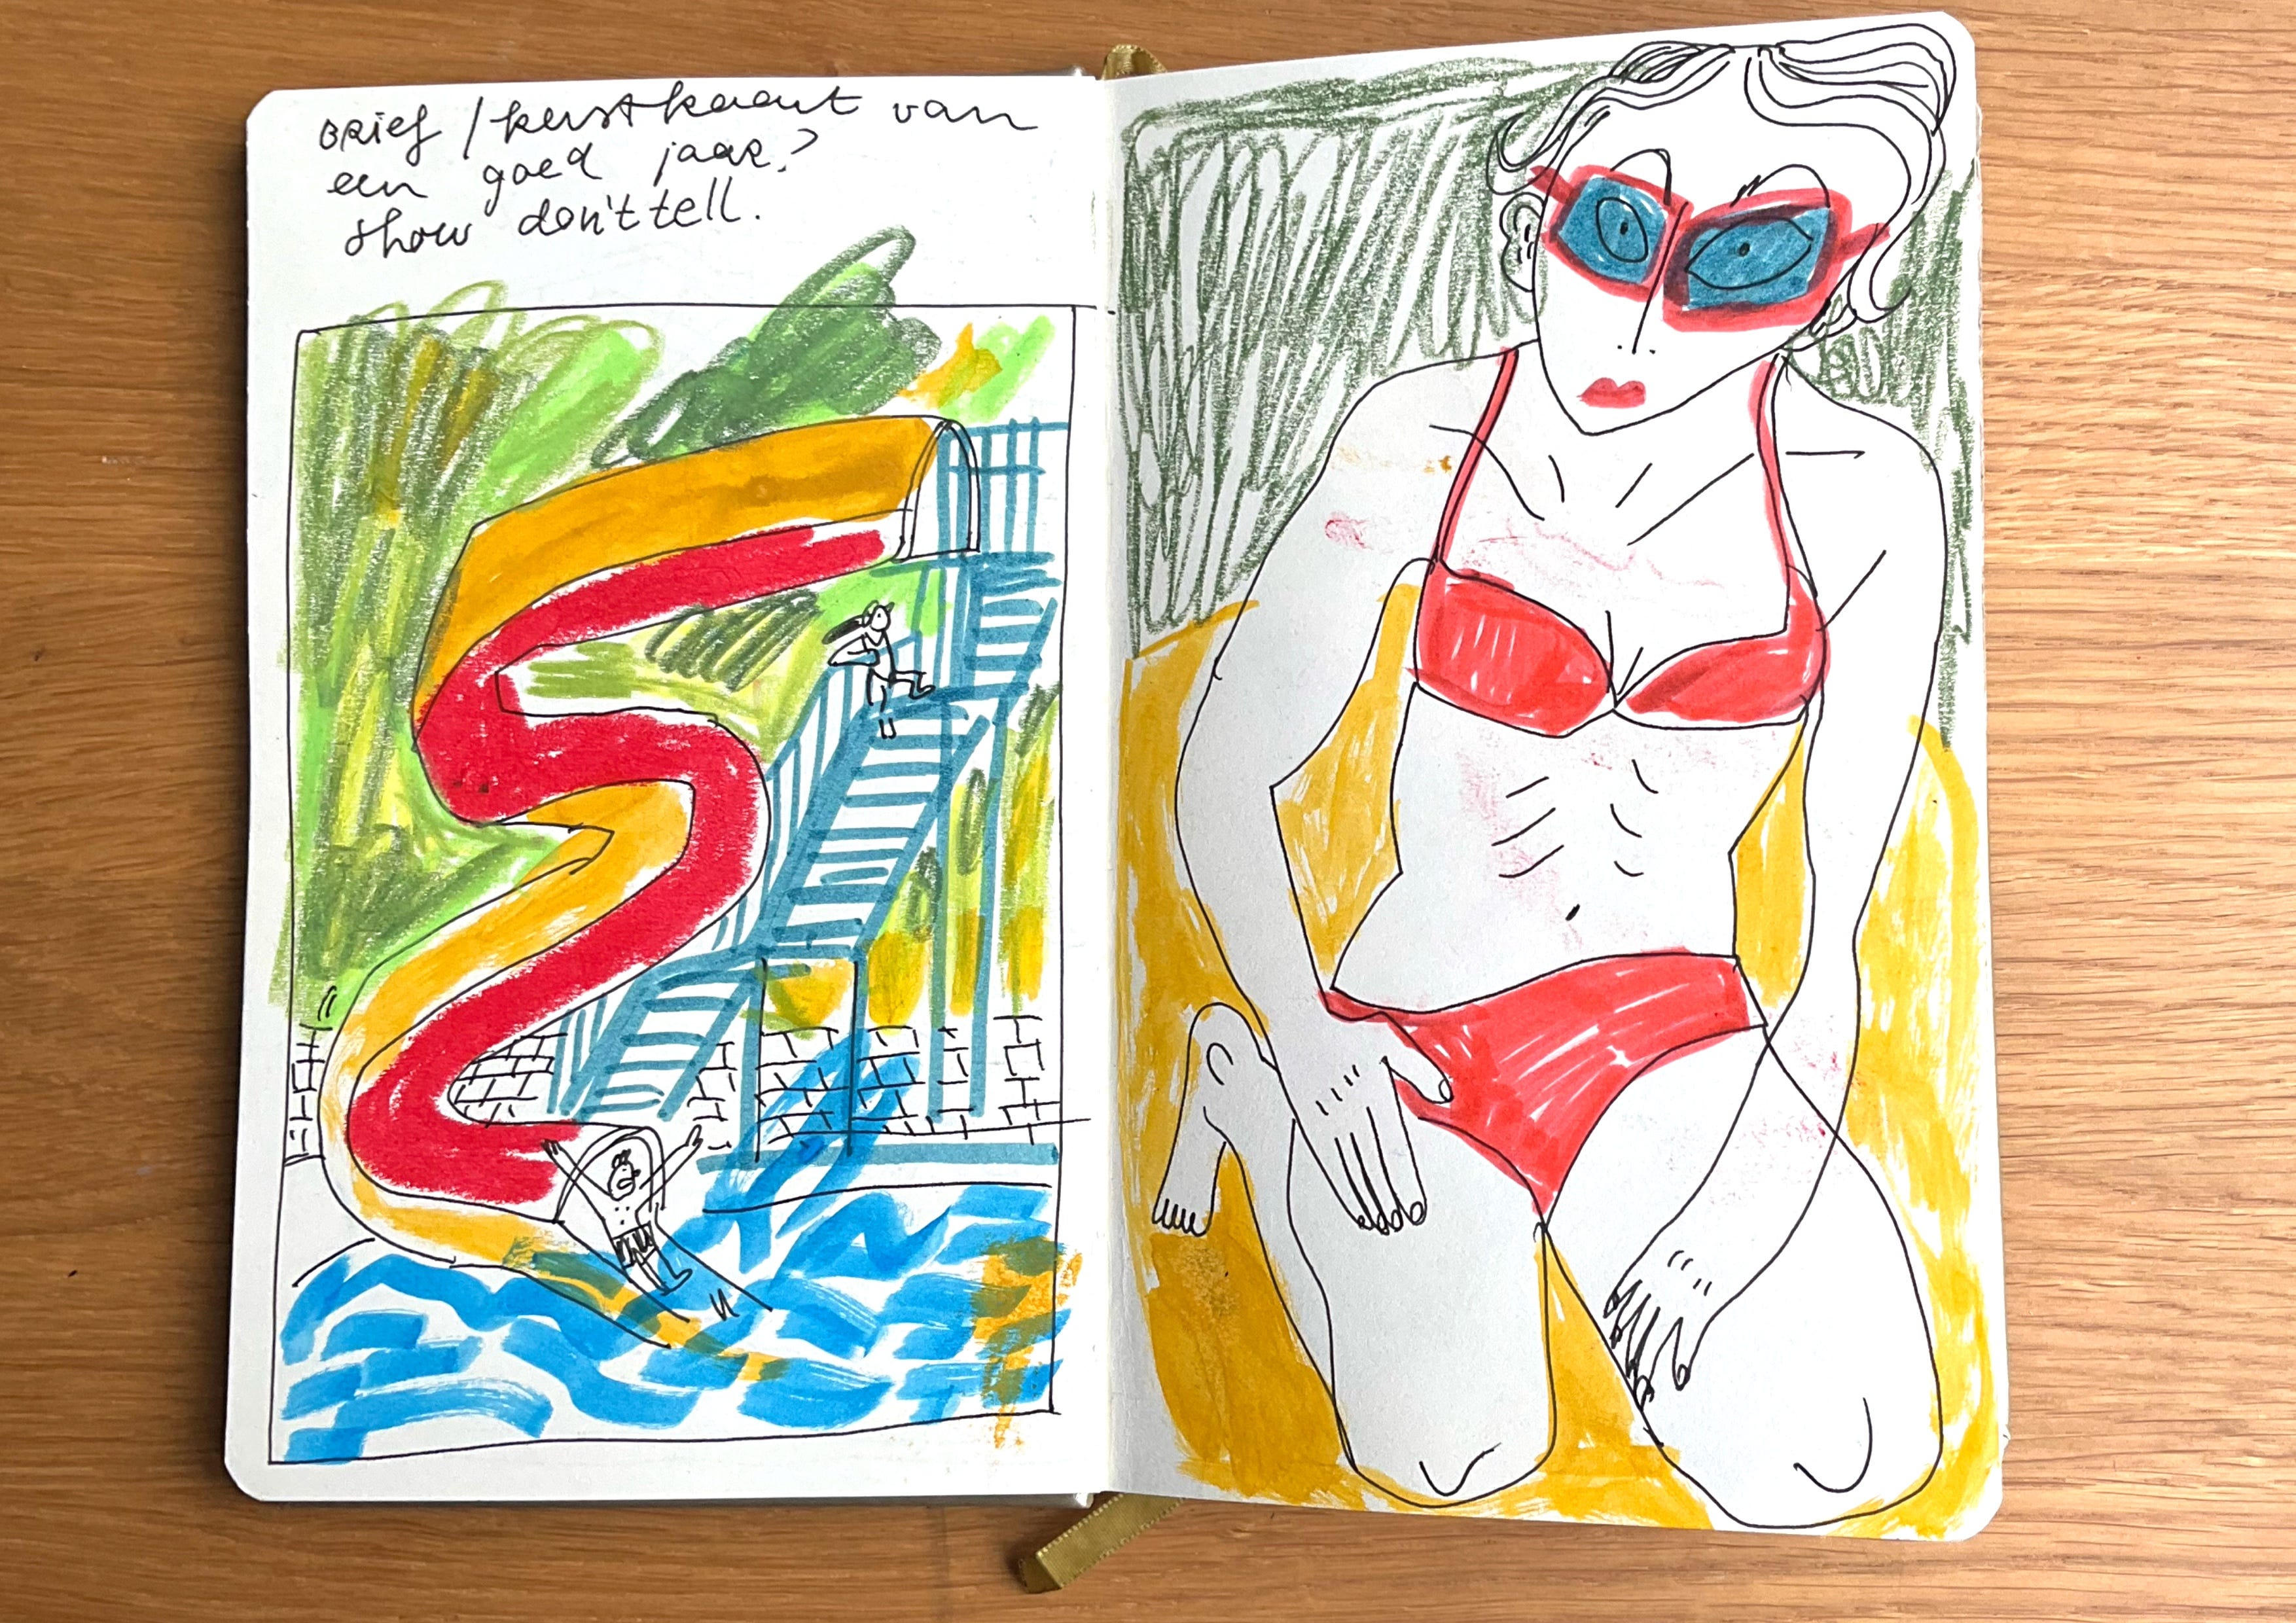 Brief / kerstkaart van
een goed jaar?
show don't tell.